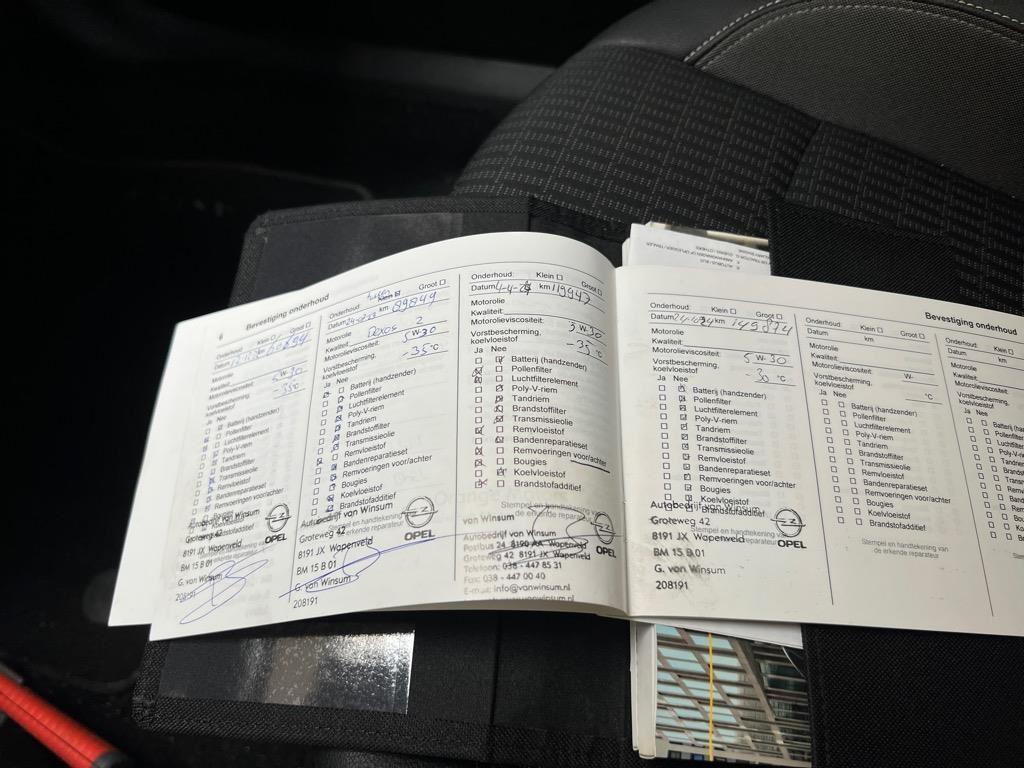 6 Bevestiging onderhoud
Onderhoud: Groot
Datum
Motorolie
Kwaliteit:
Motorolieviscositeit: 5 W-30
Vorstbescherming, koelvloeistof -35°C
Ja Nee
Batterij (handzender)
Pollenfilter
Luchtfilterelement
Poly-V-riem
Tandriem
Brandstoffilter
Transmissieolie
Remvloeistof
Bandenreparatieset
Remvoeringen voor/achter
Bougies
Koelvloeistof
Brandstofadditief
Autobedrijf van Winsum
Groteweg 42
8191 JX Wapenveld
BM 15 B 01
G. van Winsum
OPEL
Onderhoud: Klein Groot
Datum km 89849
Motorolie
Kwaliteit: Dexos 2
Motorolieviscositeit: 5 W-30
Vorstbescherming, koelvloeistof -35°C
Ja Nee
Batterij (handzender)
Pollenfilter
Luchtfilterelement
Poly-V-riem
Tandriem
Brandstoffilter
Transmissieolie
Remvloeistof
Bandenreparatieset
Remvoeringen voor/achter
Bougies
Koelvloeistof
Brandstofadditief
Stempel en handtekening van de erkende reparateur
Autobedrijf van Winsum
Groteweg 42
8191 JX Wapenveld
BM 15 B 01
G. van Winsum
208191
OPEL
Onderhoud: Klein Groot
Datum 4-4-24 km 119947
Motorolie
Kwaliteit:
Motorolieviscositeit: 5 W-30
Vorstbescherming, koelvloeistof -35°C
Ja Nee
Batterij (handzender)
Pollenfilter
Luchtfilterelement
Poly-V-riem
Tandriem
Brandstoffilter
Transmissieolie
Remvloeistof
Bandenreparatieset
Remvoeringen voor/achter
Bougies
Koelvloeistof
Brandstofadditief
Stempel en handtekening van
de erkende reparateur
van Winsum
Autobedrijf van Winsum
Postbus 24 8190 AA Wapenveld
Groteweg 42 8191 JX Wapenveld
Telefoon: 038 - 447 85 31
Fax: 038 - 447 00 40
E-mail: info@vanwinsum.nl
OPEL
Bevestiging onderhoud
Onderhoud: Klein Groot
Datum km 149874
Motorolie
Kwaliteit:
Motorolieviscositeit: 5 W-30
Vorstbescherming, koelvloeistof -30°C
Ja Nee
Batterij (handzender)
Pollenfilter
Luchtfilterelement
Poly-V-riem
Tandriem
Brandstoffilter
Transmissieolie
Remvloeistof
Bandenreparatieset
Remvoeringen voor/achter
Bougies
Koelvloeistof
Brandstofadditief
Autobedrijf van Winsum
Groteweg 42
8191 JX Wapenveld
BM 15 B 01
G. van Winsum
208191
OPEL
Onderhoud: Klein Groot
Datum km
Motorolie
Kwaliteit:
Motorolieviscositeit: W-
Vorstbescherming, koelvloeistof °C
Ja Nee
Batterij (handzender)
Pollenfilter
Luchtfilterelement
Poly-V-riem
Tandriem
Brandstoffilter
Transmissieolie
Remvloeistof
Bandenreparatieset
Remvoeringen voor/achter
Bougies
Koelvloeistof
Brandstofadditief
Stempel en handtekening van
de erkende reparateur
Onderhoud: Klein
Datum km
Motorolie
Kwaliteit:
Motorolieviscositeit:
Vorstbescherming, koelvloeistof
Ja Nee